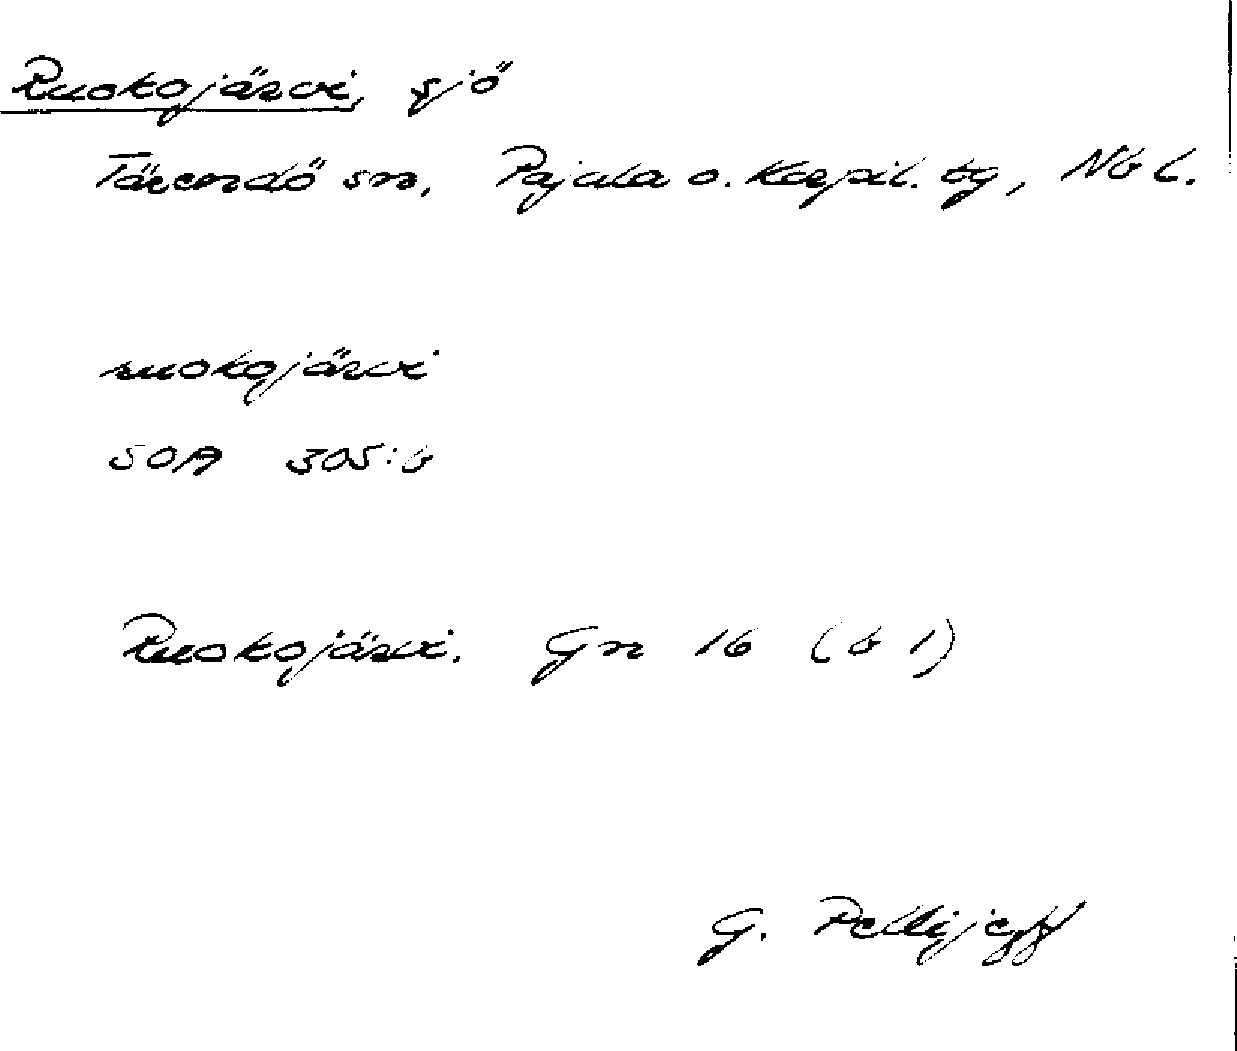 Ruokojärvi, sjö
Tärendö sn, Pajala o. Korpil. tg, Nb l.
ruokojärvi
SOA 305:6
Ruokojärvi. Gn 16 (b 1)
G. Pellijeff